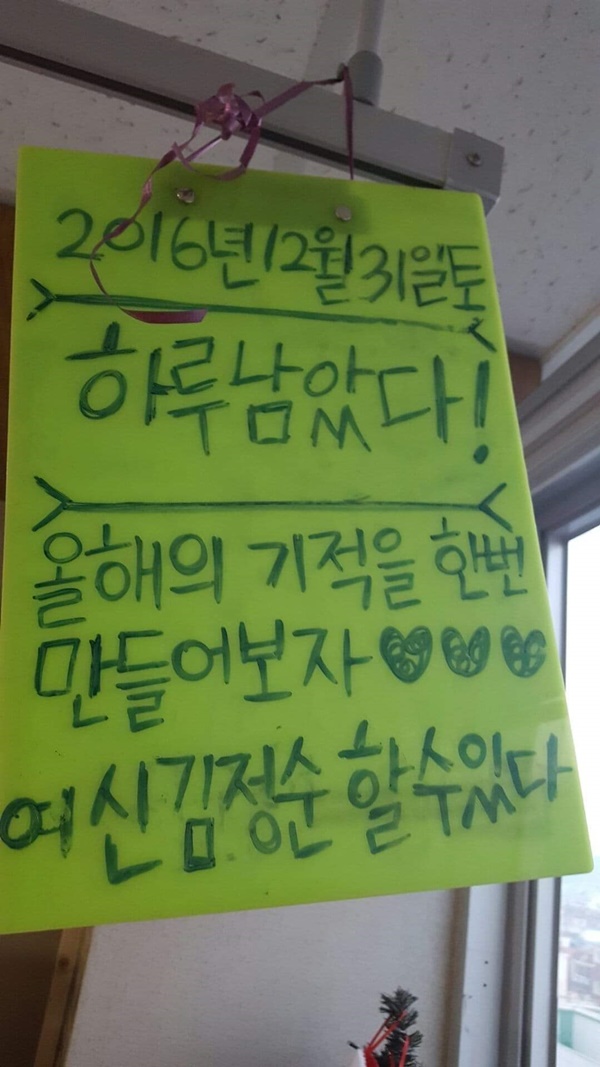 2016년12월31일토
하루남았다!
올해의 기적을 한번
만들어보자♡♡♡
여신김정순 할수있다